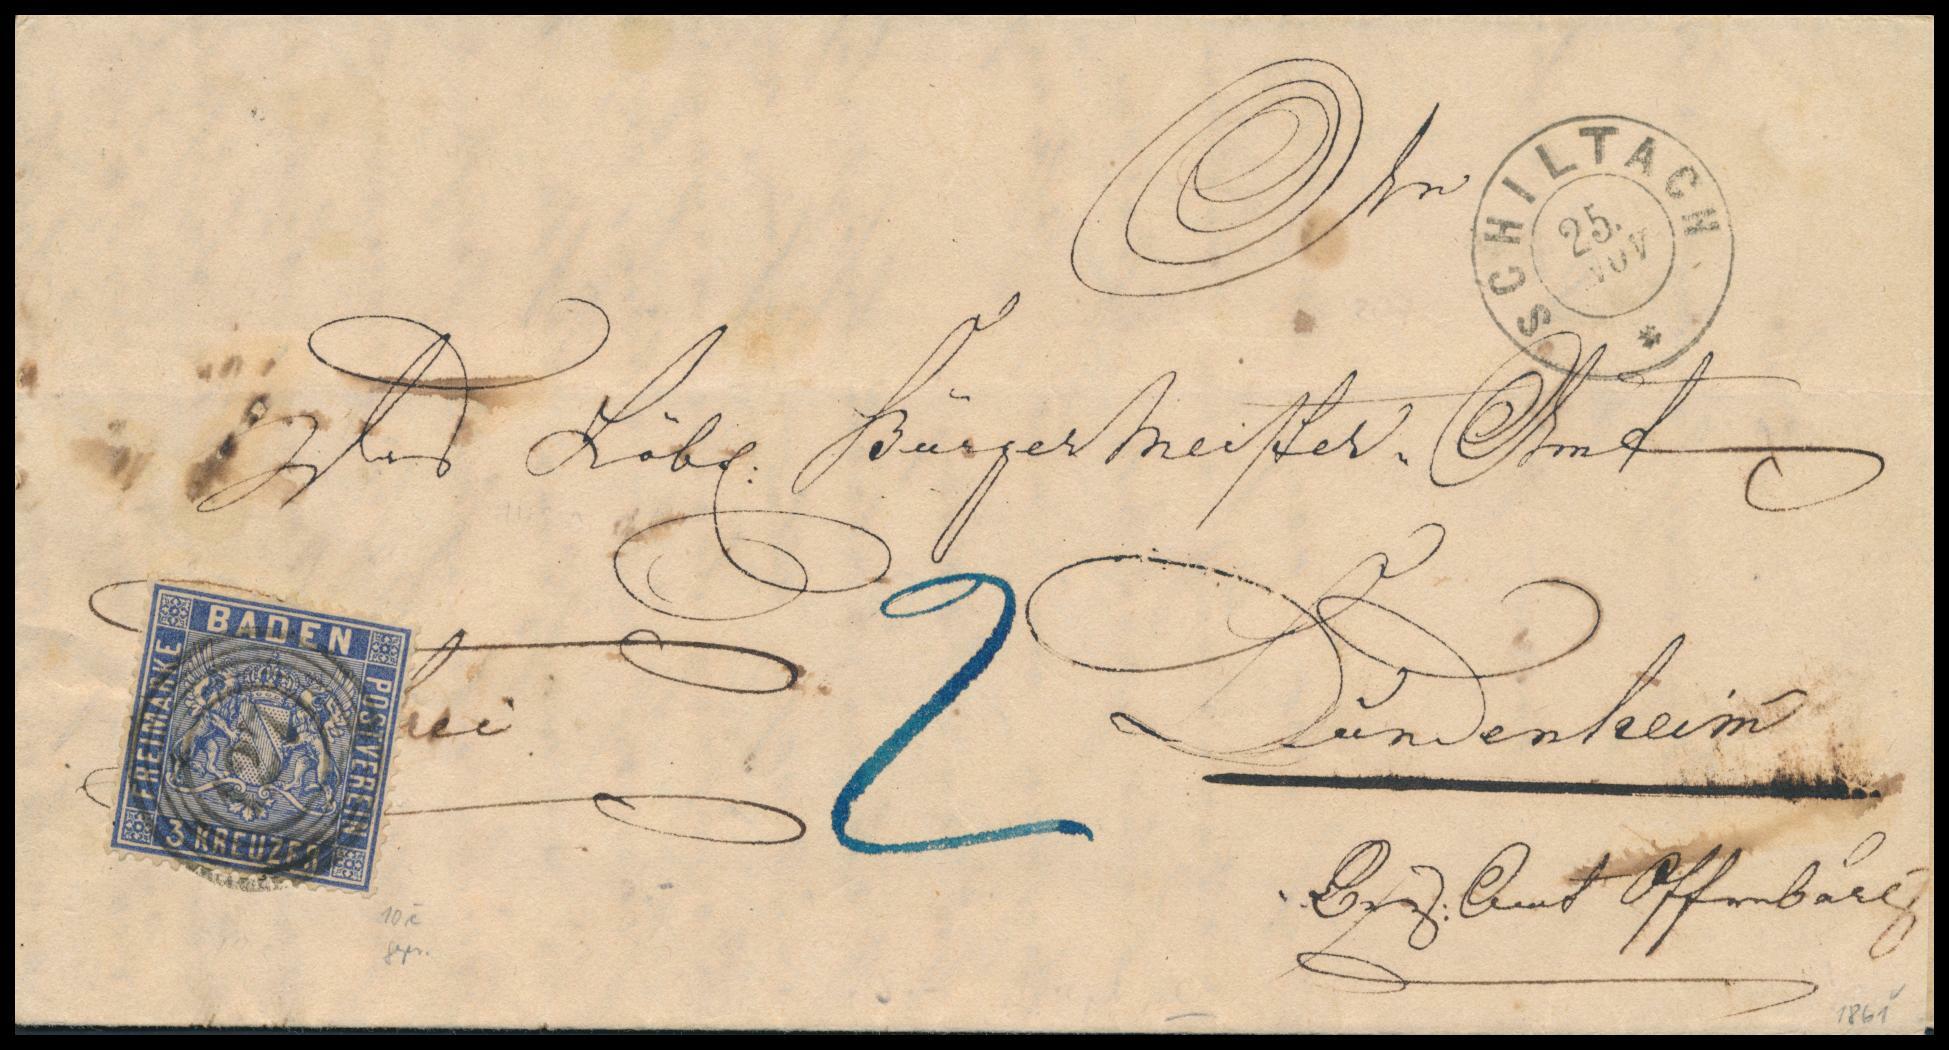 An
SCHILTACH
25.
NOV
das Löbl. Bürgermeister-Amt
BADEN
FREIMARKE
POSTVEREIN
3 KREUZER
2
Dundenheim
Bez. Amt Offenburg
10c
gepr.
1861